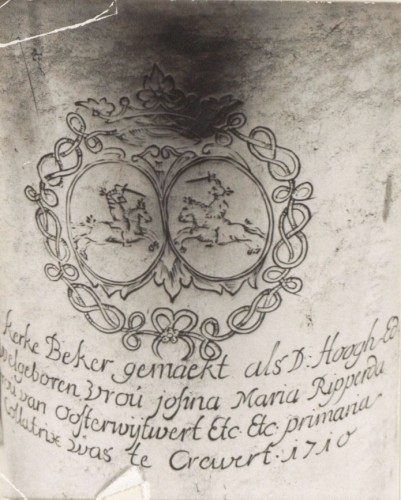 kerke Beker gemaekt als D: Hoogh Ed
welgeboren Vroú josina Maria Ripperda
van Oosterwijtwert Etc. Etc. primaria
Collatrix Was te Crewert. 1710